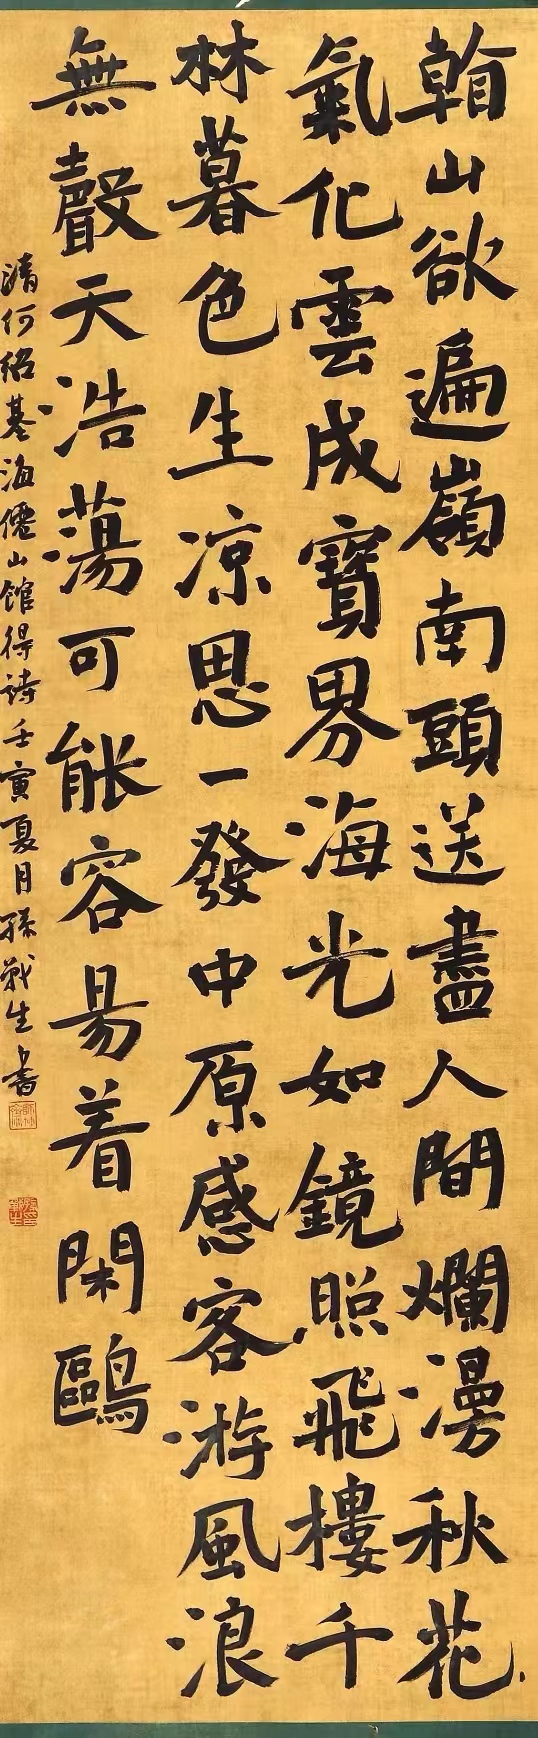 翰山欲遍嶺南頭送盡人間爛漫秋花
氣化雲成寶界海光如鏡照飛樓千
林暮色生凉思一發中原感客游風浪
無聲天浩蕩可能容易着閑鷗
清何紹基海僊山館得詩壬寅夏月孫戰生書